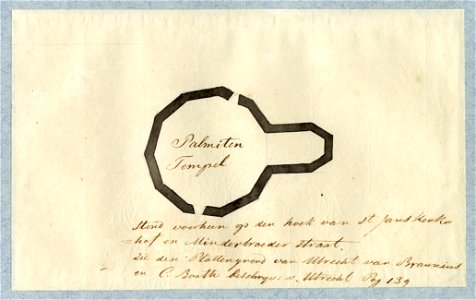 Palmiten
Tempel
Stond voorheen op den hoek van St Jans kerk
=hof en Minderbroeder Straat.
Zie den Plattengrond van Utrecht van Braunius
en C. Booth beschryv. v. Utrecht Pg 139